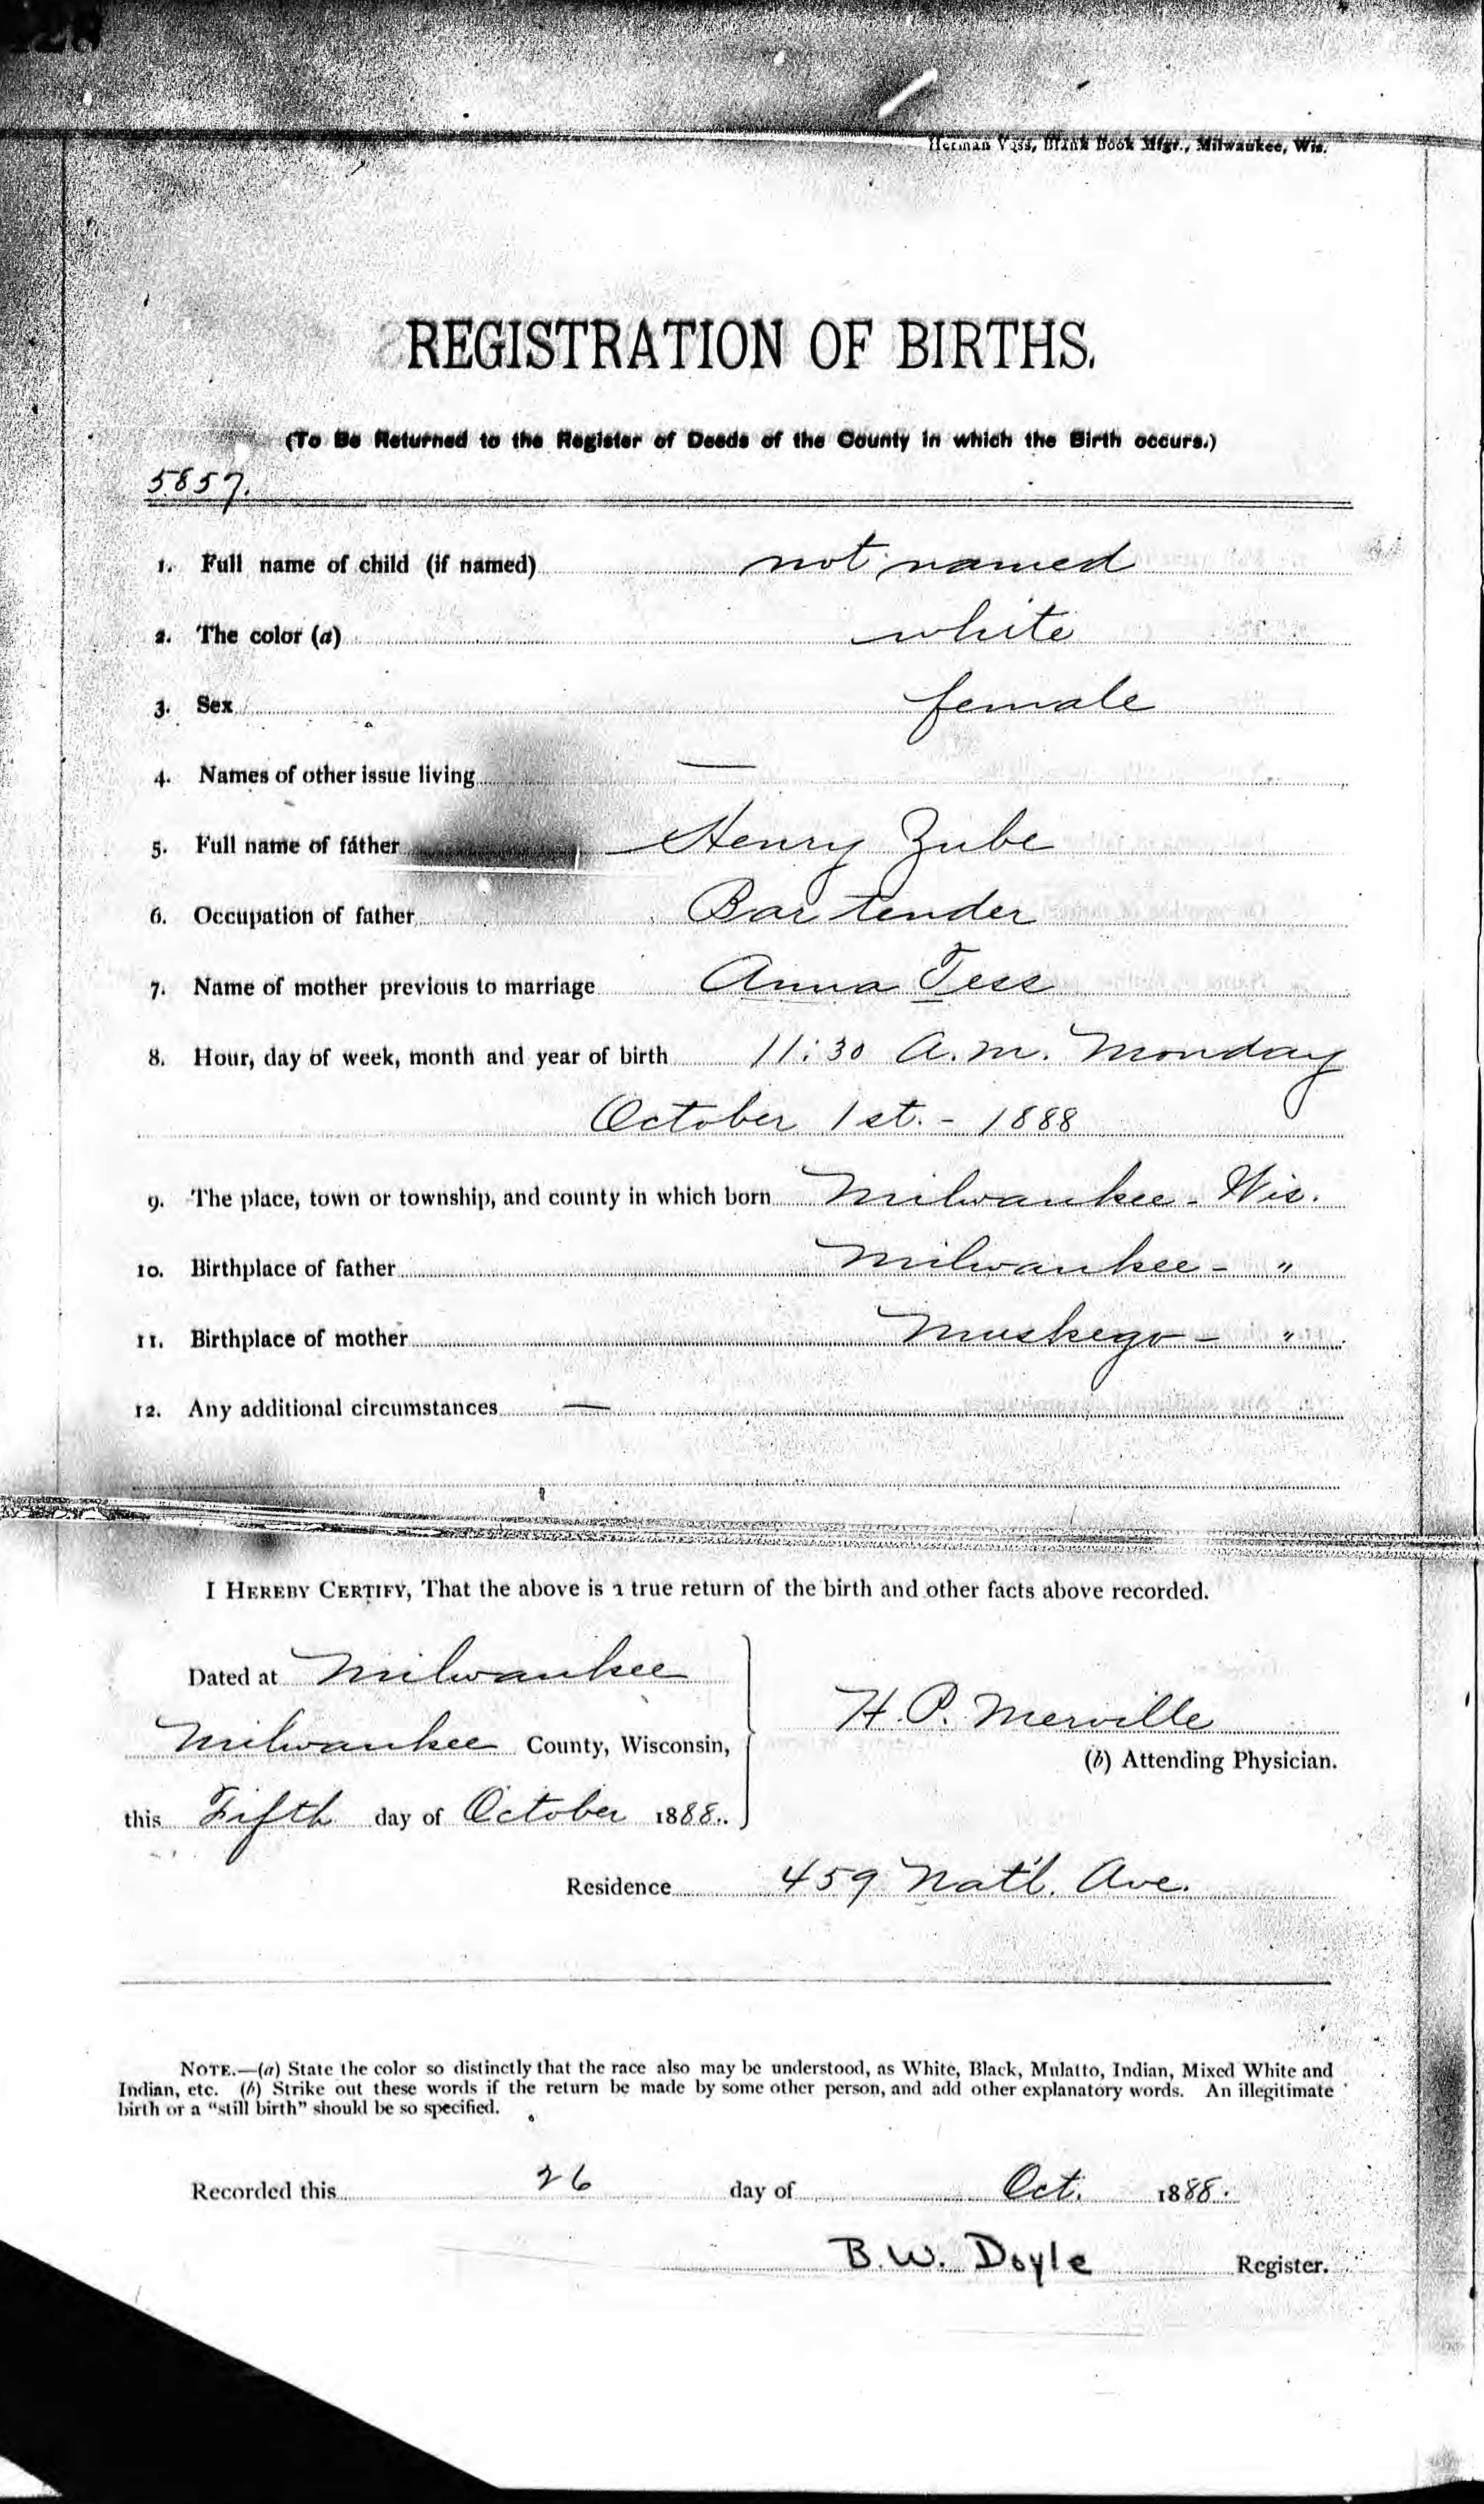 Herman Voss, Blank Book Mfgr., Milwaukee, Wis.
REGISTRATION OF BIRTHS.
(To Be Returned to the Register of Deeds of the County in which the Birth occurs.)
5857.
1. Full name of child (if named) not named
2. The color (a) white
3. Sex female
4. Names of other issue living —
5. Full name of father Henry Zube
6. Occupation of father Bar tender
7. Name of mother previous to marriage Anna Tess
8. Hour, day of week, month and year of birth 11:30 A.M. Monday
October 1st. - 1888
9. The place, town or township, and county in which born Milwaukee - Wis.
10. Birthplace of father Milwaukee - "
11. Birthplace of mother Muskego - "
12. Any additional circumstances —
I HEREBY CERTIFY, That the above is a true return of the birth and other facts above recorded.
Dated at Milwaukee
Milwaukee County, Wisconsin,
this Fifth day of October 1888.
H. P. Merville
(b) Attending Physician.
Residence 459 Nat'l. Ave.
NOTE.—(a) State the color so distinctly that the race also may be understood, as White, Black, Mulatto, Indian, Mixed White and
Indian, etc. (b) Strike out these words if the return be made by some other person, and add other explanatory words. An illegitimate
birth or a "still birth" should be so specified.
Recorded this 26 day of Oct. 1888.
B. W. Doyle Register.